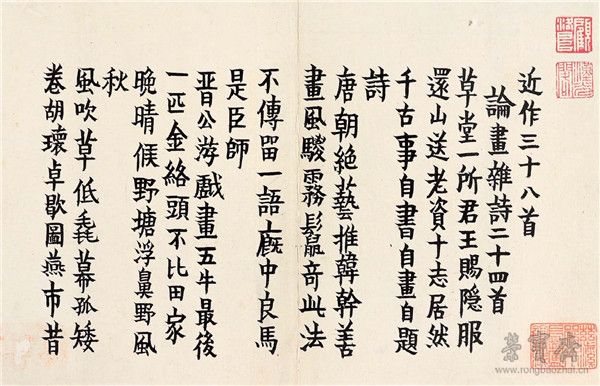 近作三十八首
論畫雜詩二十四首
草堂一所君王賜隱服
還山送老資十志居然
千古事自書自畫自題
詩
唐朝絕藝推韓幹善
畫風騣霧鬣奇此法
不傳留一語廄中良馬
是臣師
晉公游戲畫五牛最後
一匹金絡頭不比田家
晚晴候野塘浮鼻野風
秋
風吹草低毳幕孤矮
卷胡瓌卓歇圖燕市昔
榮寶齋
www.rongbaozhai.cn